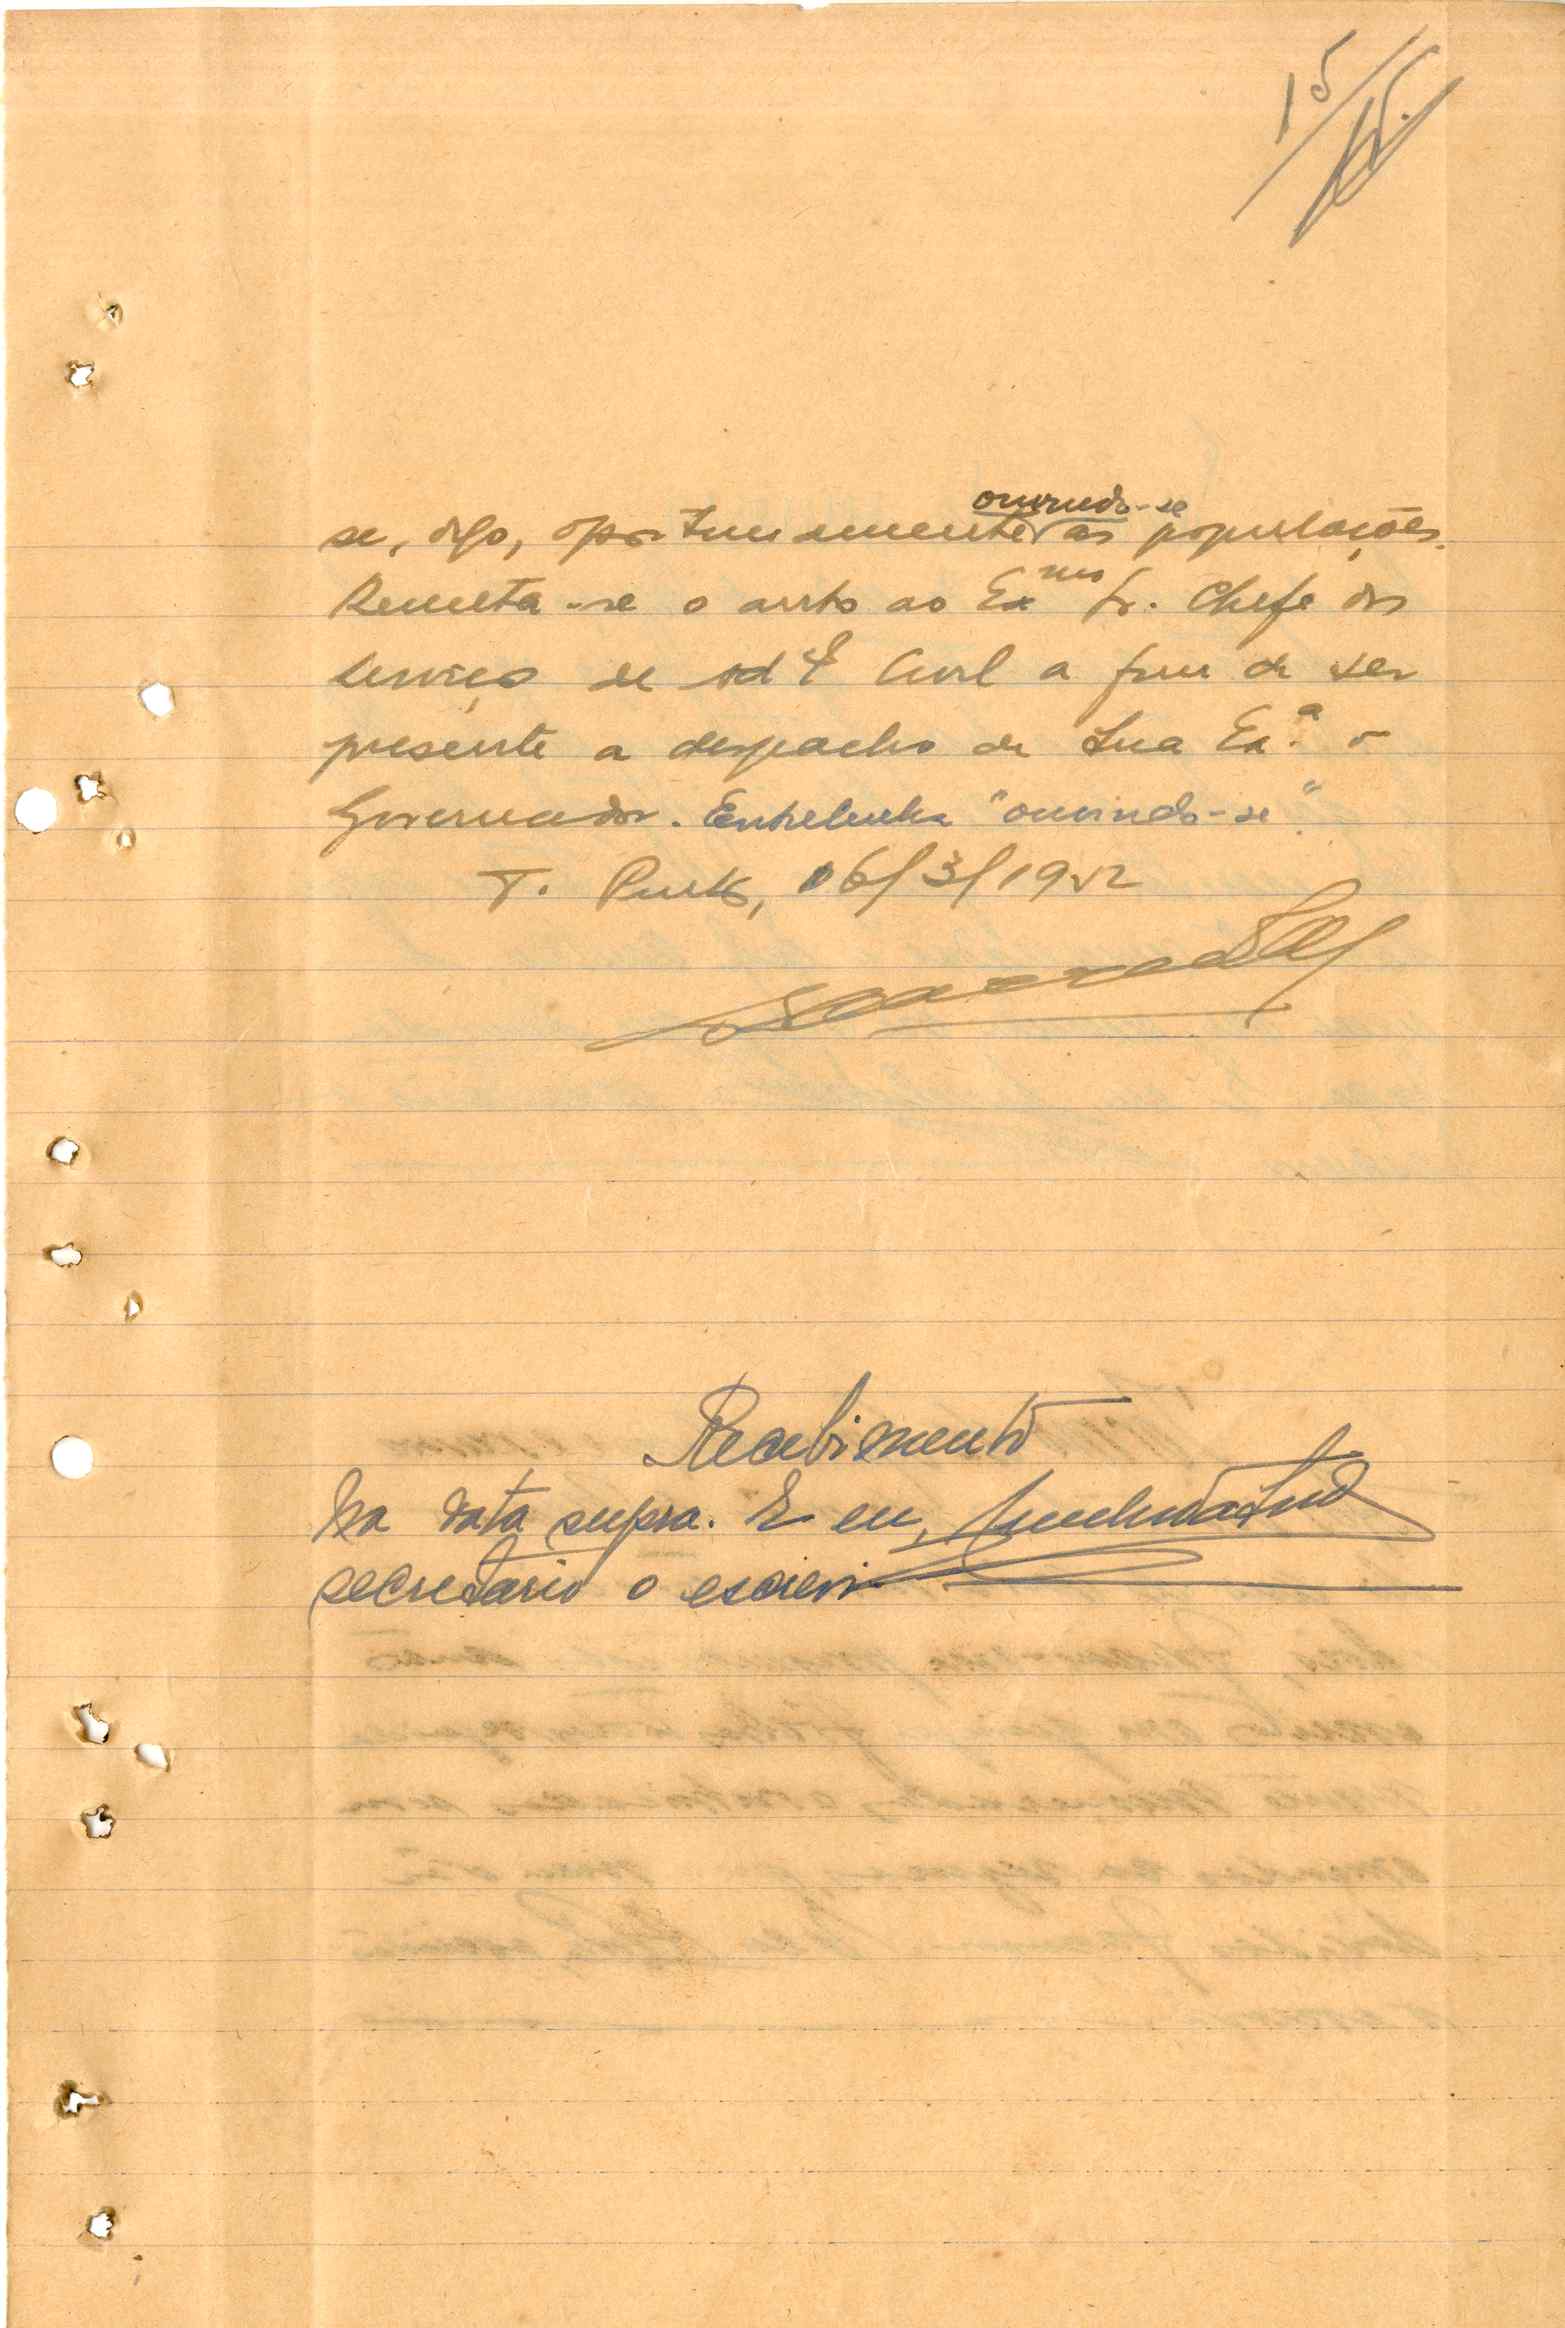 15
ouvindo-se
se, digo, oportunamente as populações.
Remeta-se o auto ao Exmo Sr. Chefe dos
Serviço de Adm Civil a fim de ser
presente a despacho de Sua Exª. o
Governador. Entrelinha "ouvindo-se".
T. Punto, 6/3/1952
Recebimento
Na data supra. E eu,
secretário o escrevi